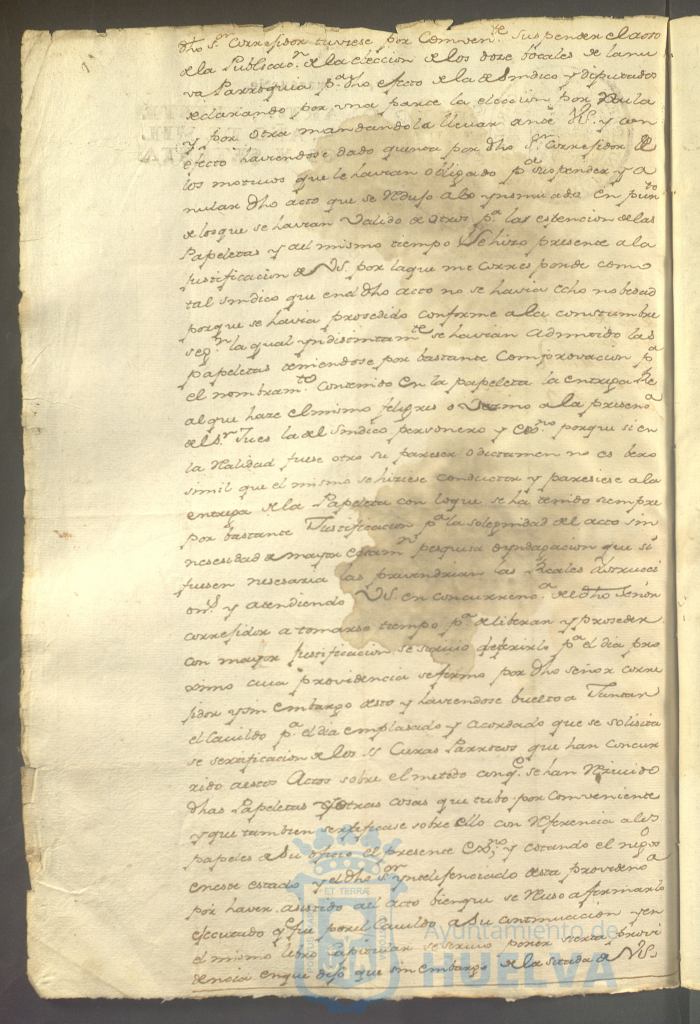 dho Sr. Corregidor tuviese por Comvente. suspender el acto
de la Publicacn. de la eleccion de los doze bocales de la nu
va Parroquia pa. dho efecto de la de Sindico y diputados
declarando por una parte la eleccion por Nula
y por otra mandandola llevar ante VS. y con
efecto haviendose dado quenta por dho Sr. Corregidor de
los motivos que le havian obligado pa. suspender y a
nular dho acto que se Redujo a lo ynsinuado en punto
de los que se havian Valido de otros pa. las estencion de las
Papeletas y al mismo tiempo Se hizo presente a la
justificacion de VS. por la que me corresponde como
tal sindico que en el dho acto no se havia echo nobedad
porque se havia prosedido conforme a la constumbre
segn. la qual yndistintamte. se havian admitido las
papeletas teniendose por bastante Comprovacion pa.
el nombramto. contenido en la papeleta la entrega Re
al que haze el mismo feligres o Vezino a la presena.
del Sr. Jues la del Sindico personero y esno. porque si en
la Realidad fuese otro su pareser o dictamen no es bero
simil que el mismo se hiziese conductor y paresiese a la
entrega de la Papeleta con lo que se ha tenido siempre
por bastante Justificacion pa. la solegnidad del acto sin
nesesidad de mayor esamn. pesquisa o yndagacion que si
fuesen nesesaria las prevendrian las Reales ynstrucci
ons. y atendiendo VS. en concurrena. del dho Señor
corregidor a tomarse tiempo pa. deliberar y proseder
con mayor justificacion se sirvio deferirlo pa. el dia pro
ximo cuia providencia se firmo por dho señor corre
gidor y sin embargo desto y haviendose buelto a Juntar
el Cavildo pa. el dia emplasado y acordado que se solisita
se sertificacion de los SS Curas Parrocos que han concur
rido a estos Actos sobre el metodo conqe. se han Resivido
dhas Papeletas y otras cosas que tubo por comveniente
y que tambien sertificase sobre ello con Referencia a los
papeles de su ofisio el presente Esno. y estando el nego.
en este estado y el dho Sr. ynteligenciado desta providena.
por haver asistido al acto bien que se Reuso a firmarlo
ejecutado que fue por el Cavildo a Su continuacion y en
el mismo libro capitular se sirvio poner sierta provi
dencia en que dijo que sin embargo de la sitada de VS.
Ayuntamiento de
HUELVA